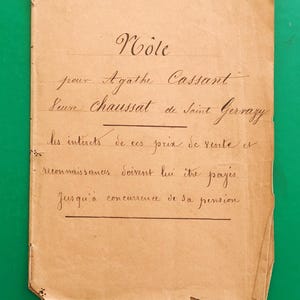 Nôle
pour Agathe Cassant
Veuve Chaussat de Saint Gervazy
les interets de ces prix de vente et
reconnaissances doivent lui être payés
jusqu'à concurrence de sa pension